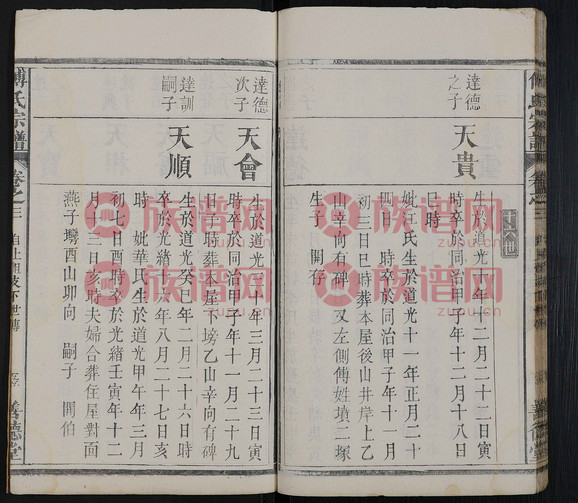 十六世
達德
之子
天貴
生於道光十年十二月二十二日寅
時卒於同治甲子年十二月十八日
巳時
妣江氏生於道光十一年正月二十
四日 時卒於同治甲子年十一月
初三日巳時葬本屋後山井岸上乙
山辛向有碑 又左側傅姓墳二塚
生子 開存
達德
次子
天會
生於道光三十年三月二十三日寅
時卒於同治甲子年十一月二十九
日丁時葬本屋下塝乙山辛向有碑
達訓
嗣子
天順
生於道光癸巳年二月二十六日時
卒於光緒十六年八月二十七日亥
時 妣華氏生於道光甲午年三月
初七日酉時卒於光緒壬寅年十二
月十三日亥時夫婦合葬住屋對面
燕子塆酉山卯向 嗣子 開伯
傅氏宗譜
卷之三
自上祖支下世傳
善德堂
族谱网
www.zupu.cn